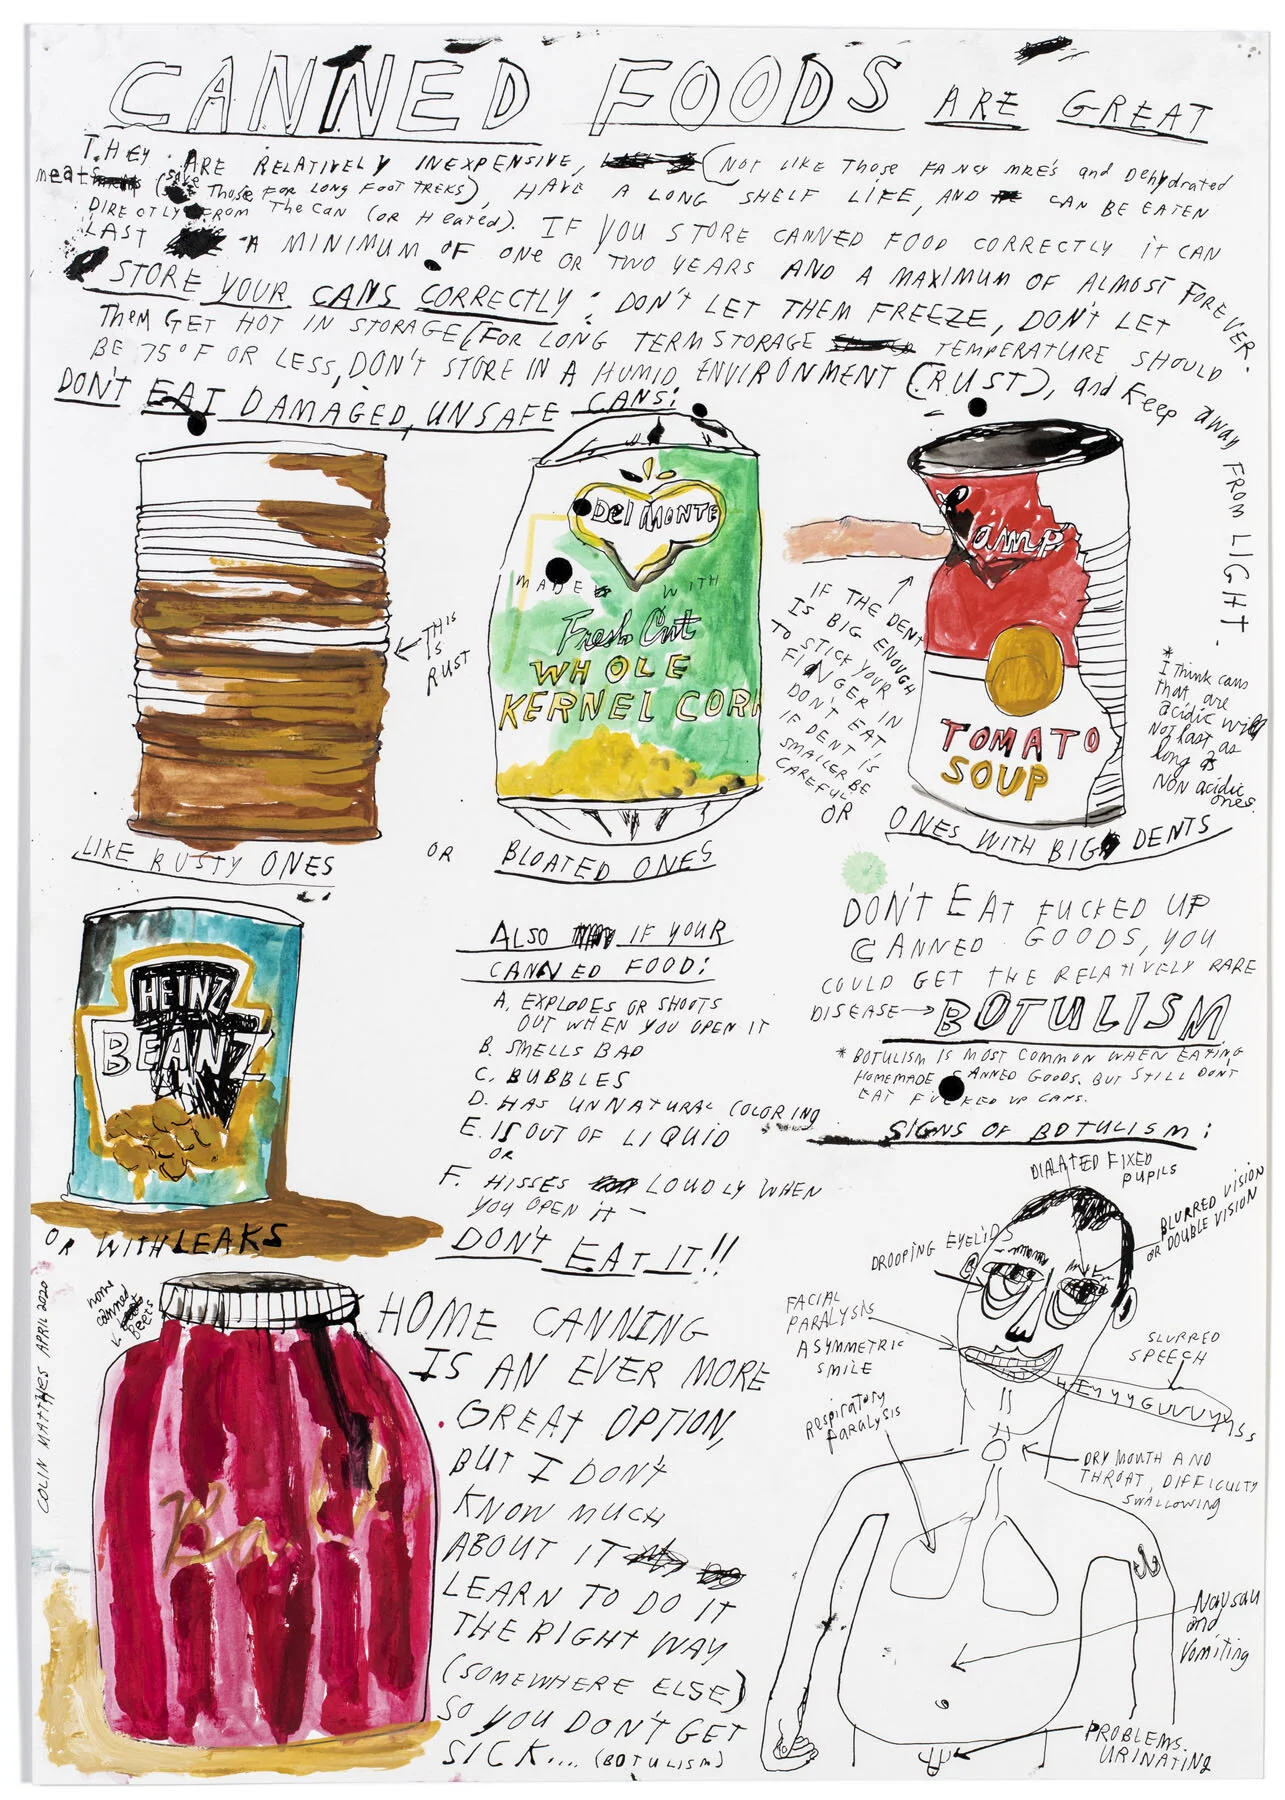 CANNED FOODS ARE GREAT
THEY ARE RELATIVELY INEXPENSIVE, (NOT LIKE THOSE FANCY MRE'S and DEHYDRATED
meats (SAVE THOSE FOR LONG FOOT TREKS), HAVE A LONG SHELF LIFE, AND CAN BE EATEN
DIRECTLY FROM THE CAN (OR HEATED). IF YOU STORE CANNED FOOD CORRECTLY IT CAN
LAST A MINIMUM OF ONE OR TWO YEARS AND A MAXIMUM OF ALMOST FOREVER.
STORE YOUR CANS CORRECTLY: DON'T LET THEM FREEZE, DON'T LET
THEM GET HOT IN STORAGE (FOR LONG TERM STORAGE TEMPERATURE SHOULD
BE 75°F OR LESS, DON'T STORE IN A HUMID ENVIRONMENT (RUST), and KEEP away FROM LIGHT.
DON'T EAT DAMAGED, UNSAFE CANS:
THIS
IS
RUST
LIKE RUSTY ONES
Del MONTE
MADE WITH
Fresh Cut
WHOLE
KERNEL CORN
OR BLOATED ONES
IF THE DENT
IS BIG ENOUGH
TO STICK YOUR
FINGER IN
DON'T EAT,
IF DENT IS
SMALLER BE
CAREFUL.
amp
TOMATO
SOUP
*
I think cans
that are
acidic will
NOT last as
long as
NON acidic
ones.
OR ONES WITH BIG DENTS
HEINZ
BEANZ
OR WITH LEAKS
ALSO IF YOUR
CANNED FOOD:
A. EXPLODES OR SHOOTS
OUT WHEN YOU OPEN IT
B. SMELLS BAD
C. BUBBLES
D. HAS UNNATURAL COLORING
E. IS OUT OF LIQUID
OR
F. HISSES LOUDLY WHEN
YOU OPEN IT –
DON'T EAT IT!!
DON'T EAT FUCKED UP
CANNED GOODS, YOU
COULD GET THE RELATIVELY RARE
DISEASE → BOTULISM
* BOTULISM IS MOST COMMON WHEN EATING
HOMEMADE CANNED GOODS. BUT STILL DON'T
EAT FUCKED UP CANS.
SIGNS OF BOTULISM:
DIALATED FIXED
PUPILS
BLURRED VISION
OR DOUBLE VISION
DROOPING EYELIDS
FACIAL
PARALYSIS
ASYMMETRIC
SMILE
SLURRED
SPEECH
Respiratory
Paralysis
DRY MOUTH AND
THROAT, DIFFICULTY
SWALLOWING
Naysau
and
Vomiting
PROBLEMS
URINATING
home
canned
beets
COLIN MATTHES APRIL 2020
HOME CANNING
IS AN EVER MORE
GREAT OPTION,
BUT I DON'T
KNOW MUCH
ABOUT IT
LEARN TO DO IT
THE RIGHT WAY
(SOMEWHERE ELSE)
SO YOU DON'T GET
SICK.... (BOTULISM)